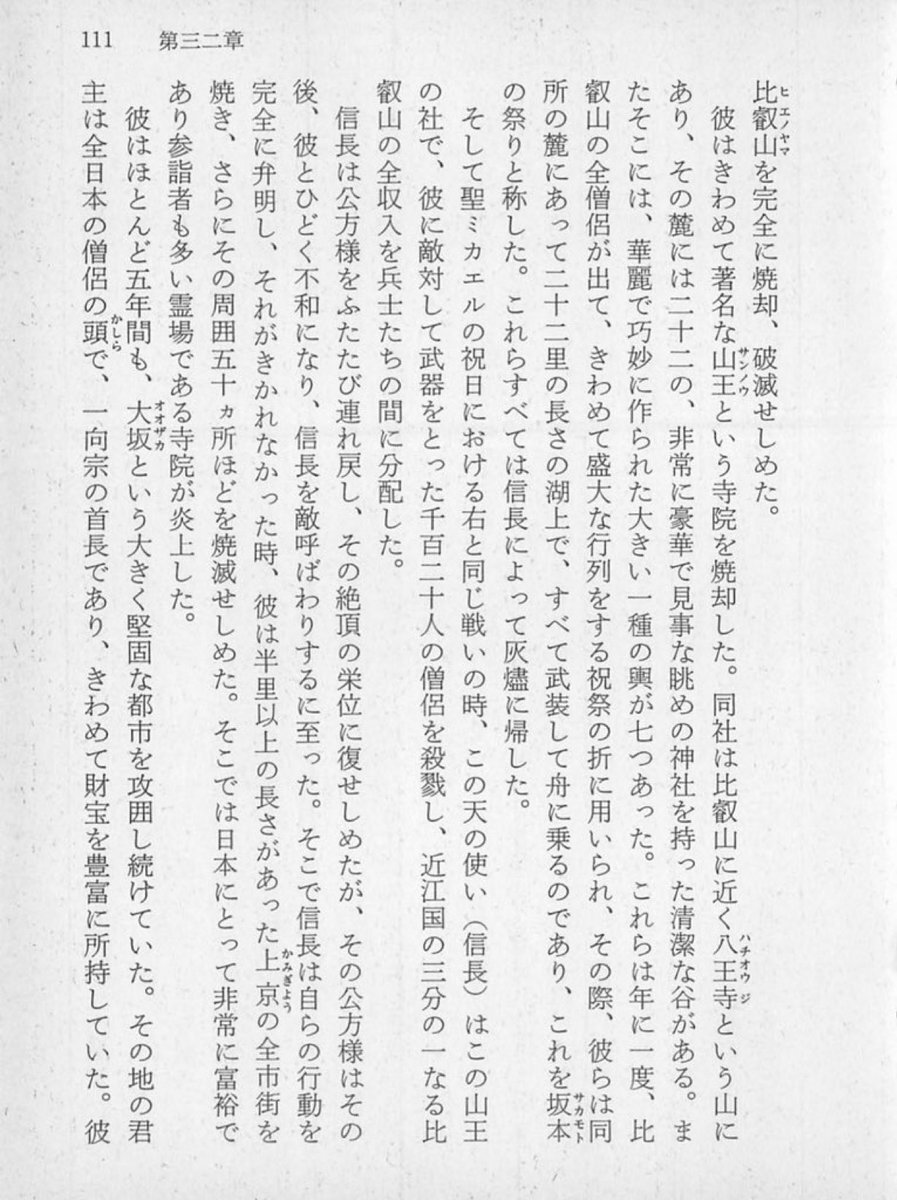 111　第三二章
比叡山を完全に焼却、破滅せしめた。
　彼はきわめて著名な山王という寺院を焼却した。同社は比叡山に近く八王寺という山に
あり、その麓には二十二の、非常に豪華で見事な眺めの神社を持った清潔な谷がある。ま
たそこには、華麗で巧妙に作られた大きい一種の輿が七つあった。これらは年に一度、比
叡山の全僧侶が出て、きわめて盛大な行列をする祝祭の折に用いられ、その際、彼らは同
所の麓にあって二十二里の長さの湖上で、すべて武装して舟に乗るのであり、これを坂本
の祭りと称した。これらすべては信長によって灰燼に帰した。
　そして聖ミカエルの祝日における右と同じ戦いの時、この天の使い（信長）はこの山王
の社で、彼に敵対して武器をとった千百二十人の僧侶を殺戮し、近江国の三分の一なる比
叡山の全収入を兵士たちの間に分配した。
　信長は公方様をふたたび連れ戻し、その絶頂の栄位に復せしめたが、その公方様はその
後、彼とひどく不和になり、信長を敵呼ばわりするに至った。そこで信長は自らの行動を
完全に弁明し、それがきかれなかった時、彼は半里以上の長さがあった上京の全市街を
焼き、さらにその周囲五十ヵ所ほどを焼滅せしめた。そこでは日本にとって非常に富裕で
あり参詣者も多い霊場である寺院が炎上した。
　彼はほとんど五年間も、大坂という大きく堅固な都市を攻囲し続けていた。その地の君
主は全日本の僧侶の頭で、一向宗の首長であり、きわめて財宝を豊富に所持していた。彼
ヒエノヤマ
サンノウ
ハチオウジ
サカモト
かみぎょう
オオザカ
かしら